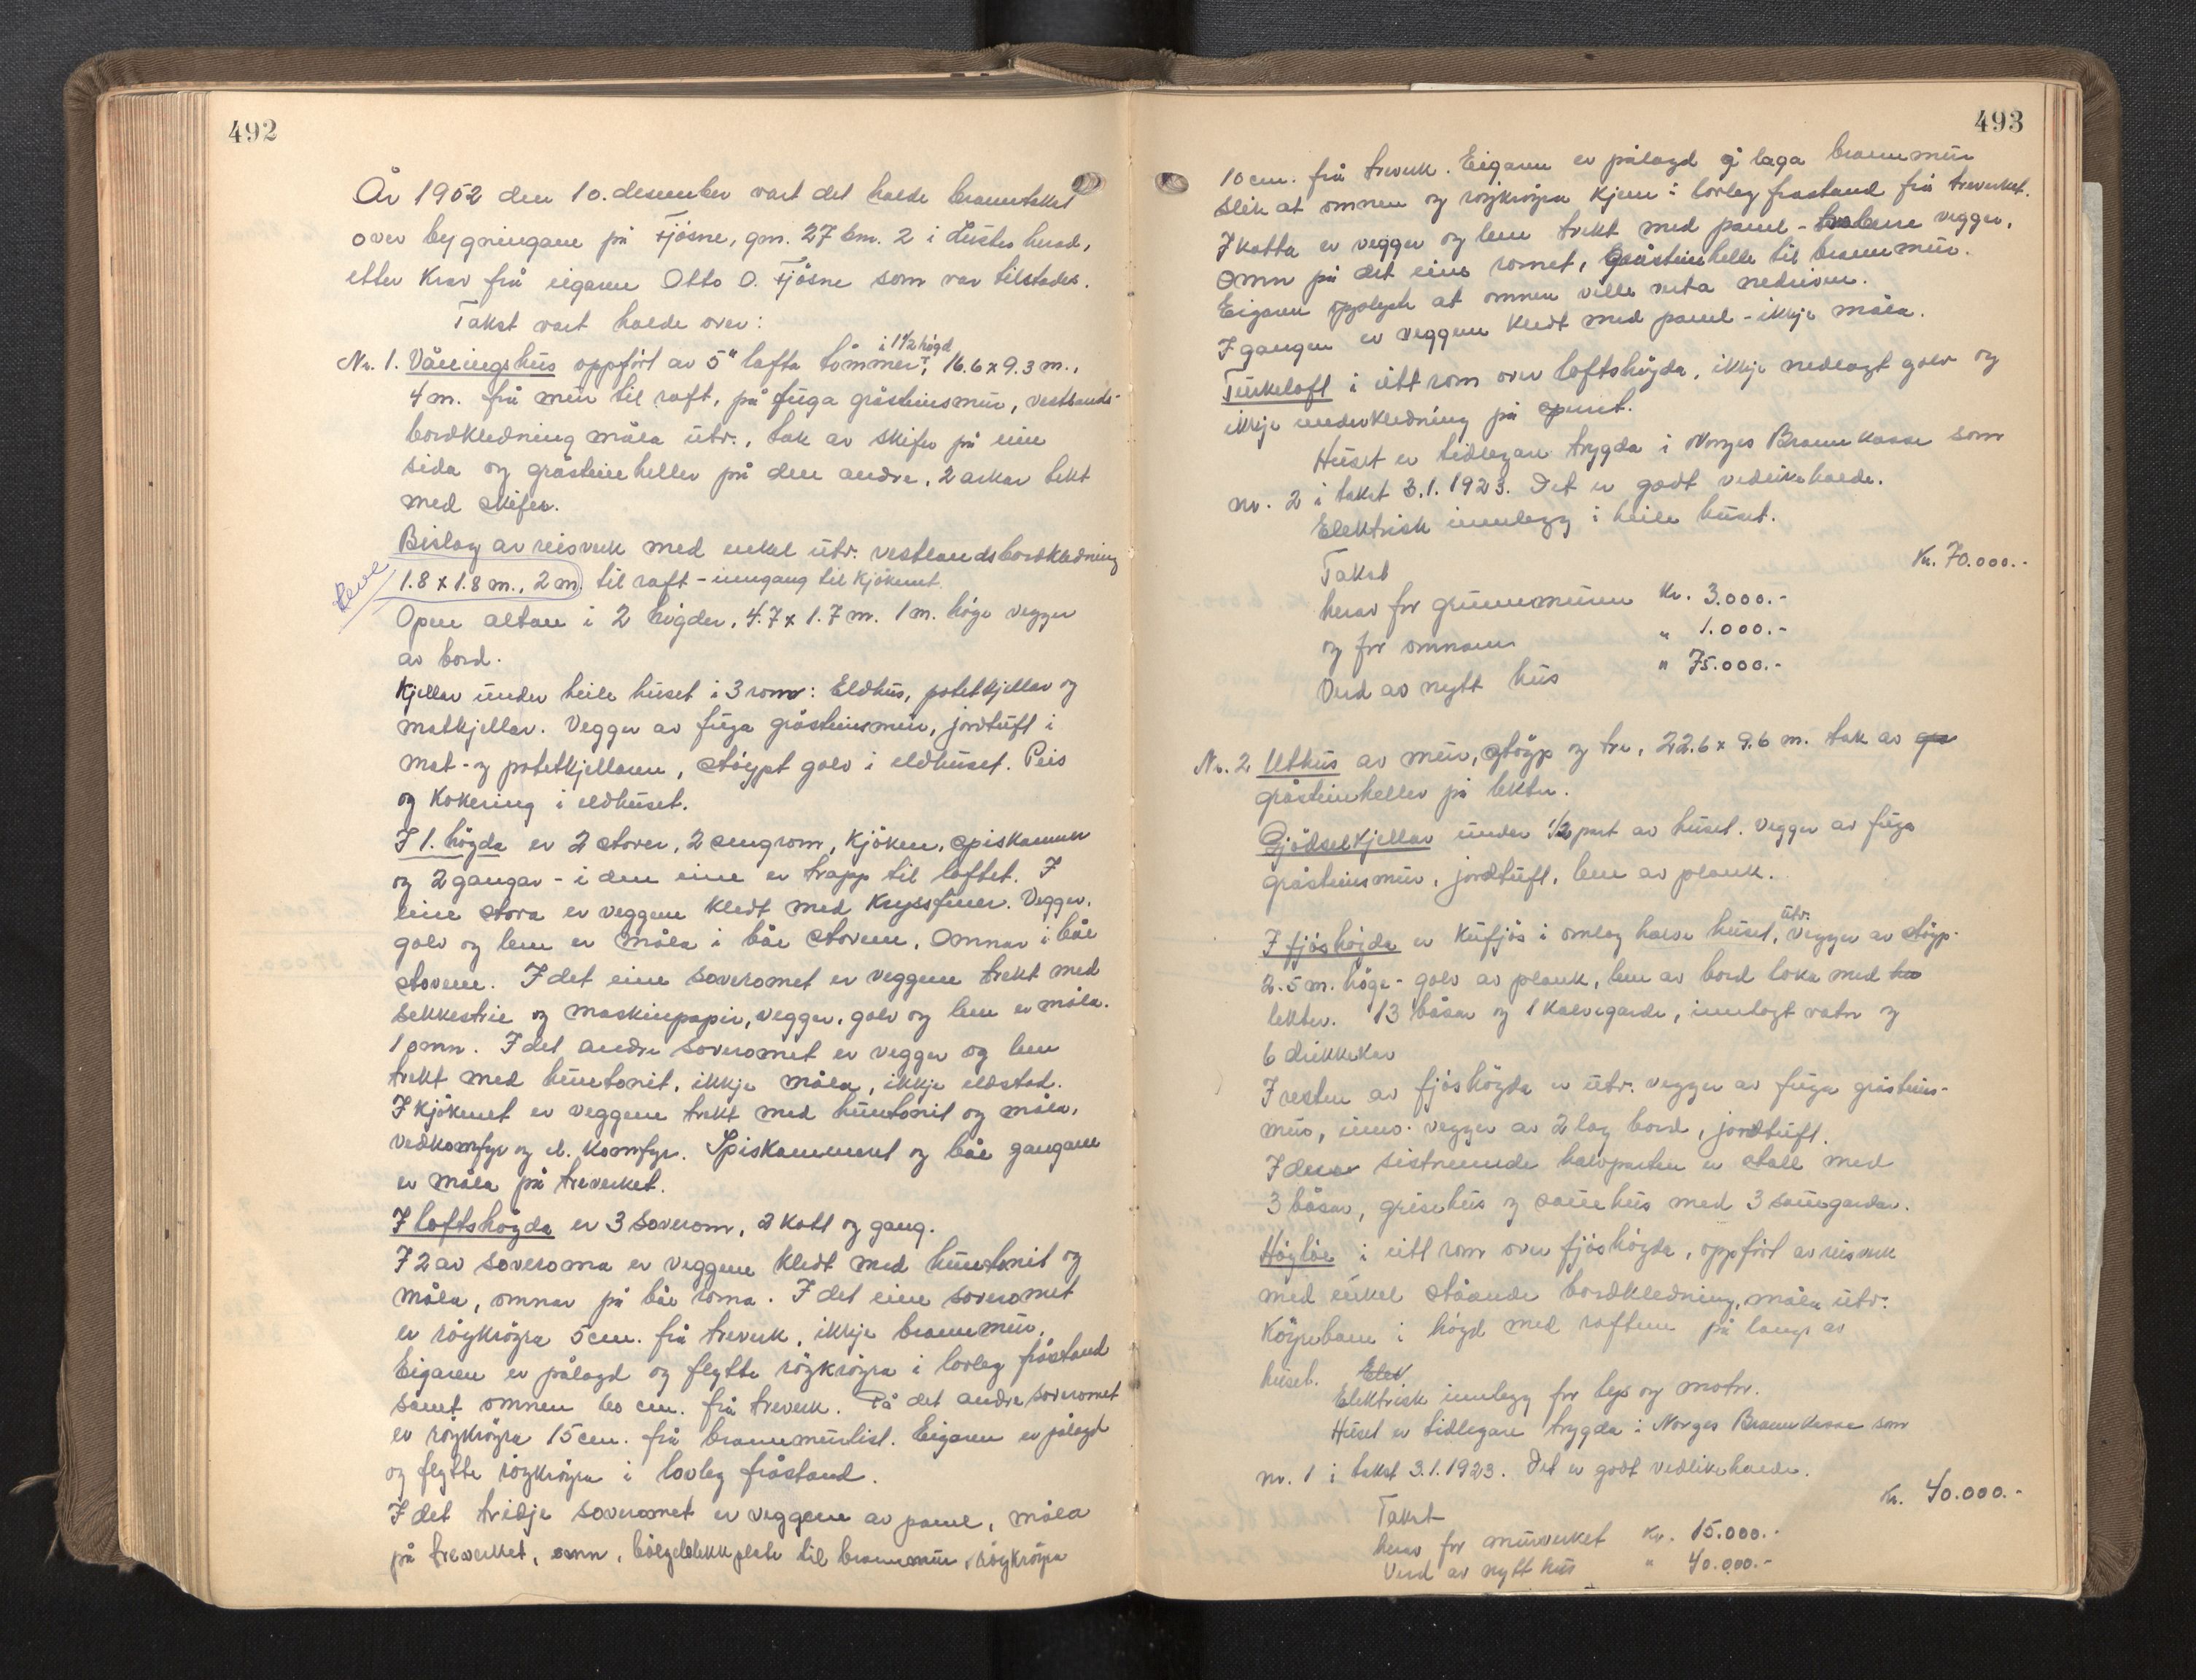 492
År 1952 den 10. desember vart det halde branntakst
over bygningane på Fjösne, gm. 27 bm. 2 i Luster herad,
etter krav frå eigaren Otto O. Fjösne som var tilstades.
Takst vart halde over:
i 1 1/2 högd
Nr. 1. Våningshus oppfört av 5" lafta tömmer, 16.6 x 9.3 m.,
4 m. frå mur til raft, på fuga gråsteinsmur, vestlands-
bordkledning måla utv., tak av skifer på eine
sida og gråsteinheller på den andre, 2 arkar tekt
med skifer.
Bislag av reisverk med enkel utv. vestlandsbordkledning
1.8 x 1.8 m., 2 m. til raft - inngang til kjökenet.
Open altan i 2 högder, 4.7 x 1.7 m. 1 m. höge vegger
av bord.
Kjellar under heile huset i 3 rom: Eldhus, potetkjellar og
matkjellar. Vegger av fuga gråsteinsmur, jordtuft i
mat- og potetkjellaren, stöypt golv i eldhuset. Peis
og kokering i eldhuset.
I 1. högda er 2 stover, 2 sengrom, kjöken, spiskammer
og 2 gangar - i den eine er trapp til loftet. I
eine stova er veggene kledt med kryssfiner. Vegger,
golv og lem er måla i båe stovene. Omnar i båe
stovene. I det eine soveromet er veggene trekt med
sekkestrie og maskinpapir, vegger, golv og lem er måla.
1 omn. I det andre soveromet er vegger og lem
trekt med huntonit, ikkje måla, ikkje eldstad.
I kjökenet er veggene trekt med huntonit og måla,
vedkomfyr og el. komfyr. Spiskammeret og båe gangane
er måla på treverket.
I loftshögda er 3 soverom, 2 kott og gang.
I 2 av soveroma er veggene kledt med huntonit og
måla, omnar på båe roma. I det eine soveromet
er röykröyra 5 cm. frå treverk, ikkje brannmur.
Eigaren er pålagd og flytte röykröyra i lovleg fråstand
samt omnen 60 cm. frå treverk. På det andre soveromet
er röykröyra 15 cm. frå brannmurlist. Eigaren er pålagd
og flytte röykröyra i lovleg fråstand.
I det tridje soveromet er veggene av panel, måla
på treverket, omn, bölgeblekkplate til brannmur, röykröyra
493
10 cm. frå treverk. Eigaren er pålagd å laga brannmur
slik at omnen og röykröyra kjem i lovleg frastand frå treverket.
I kotta er vegger og lem trekt med panel - vegger.
Omn på det eine romet, gråsteinhelle til brannmur.
Eigaren opplyste at omnen ville verta nedriven.
I gangen er veggene kledt med panel - ikkje måla.
Turkeloft i eitt rom over loftshögda, ikkje nedlagt golv og
ikkje underkledning på sperret.
Huset er tidlegare trygda i Norges Brannkasse som
nr. 2 i takst 3.1.1923. Det er godt vedlikehalde.
Elektrisk innlegg i heile huset.
Takst Kr. 70.000.-
herav for grunnmuren Kr. 3.000.-
og for omnane " 1.000.-
Verd av nytt hus " 75.000.-
Nr. 2 Uthus av mur, stöyp og tre, 22.6 x 9.6 m. tak av
gråsteinheller på lekter.
Gjödselkjellar under 1/2 part av huset. Vegger av fuga
gråsteinsmur, jordtuft, lem av plank.
utv.
I fjöshögda er kufjös i omlag halve huset, vegger av stöyp
2.5 m. höge - golv av plank, lem av bord loka med
lekter. 13 båsar og 1 kalvegarde, innlagt vatn og
6 drikkekar
I resten av fjöshögda er utv. vegger av fuga gråsteins-
mur, innv. vegger av 2 lag bord, jordtuft.
I sistnemnde halvparten er stall med
3 båsar, grisehus og sauehus med 3 sauegardar.
Höyløe i eitt rom over fjöshögda, oppfört av reisverk
med enkel ståande bordkledning, måla utv.
Köyrebane i högd med raftene på langs av
huset. Elev
Elektrisk innlegg for lys og motor.
Huset er tidlegare trygda i Norges Brannkasse som
nr. 1 i takst 3.1.1923. Det er godt vedlikehalde.
Takst Kr. 40.000.-
herav for murverket Kr. 15.000.-
Verd av nytt hus " 40.000.-